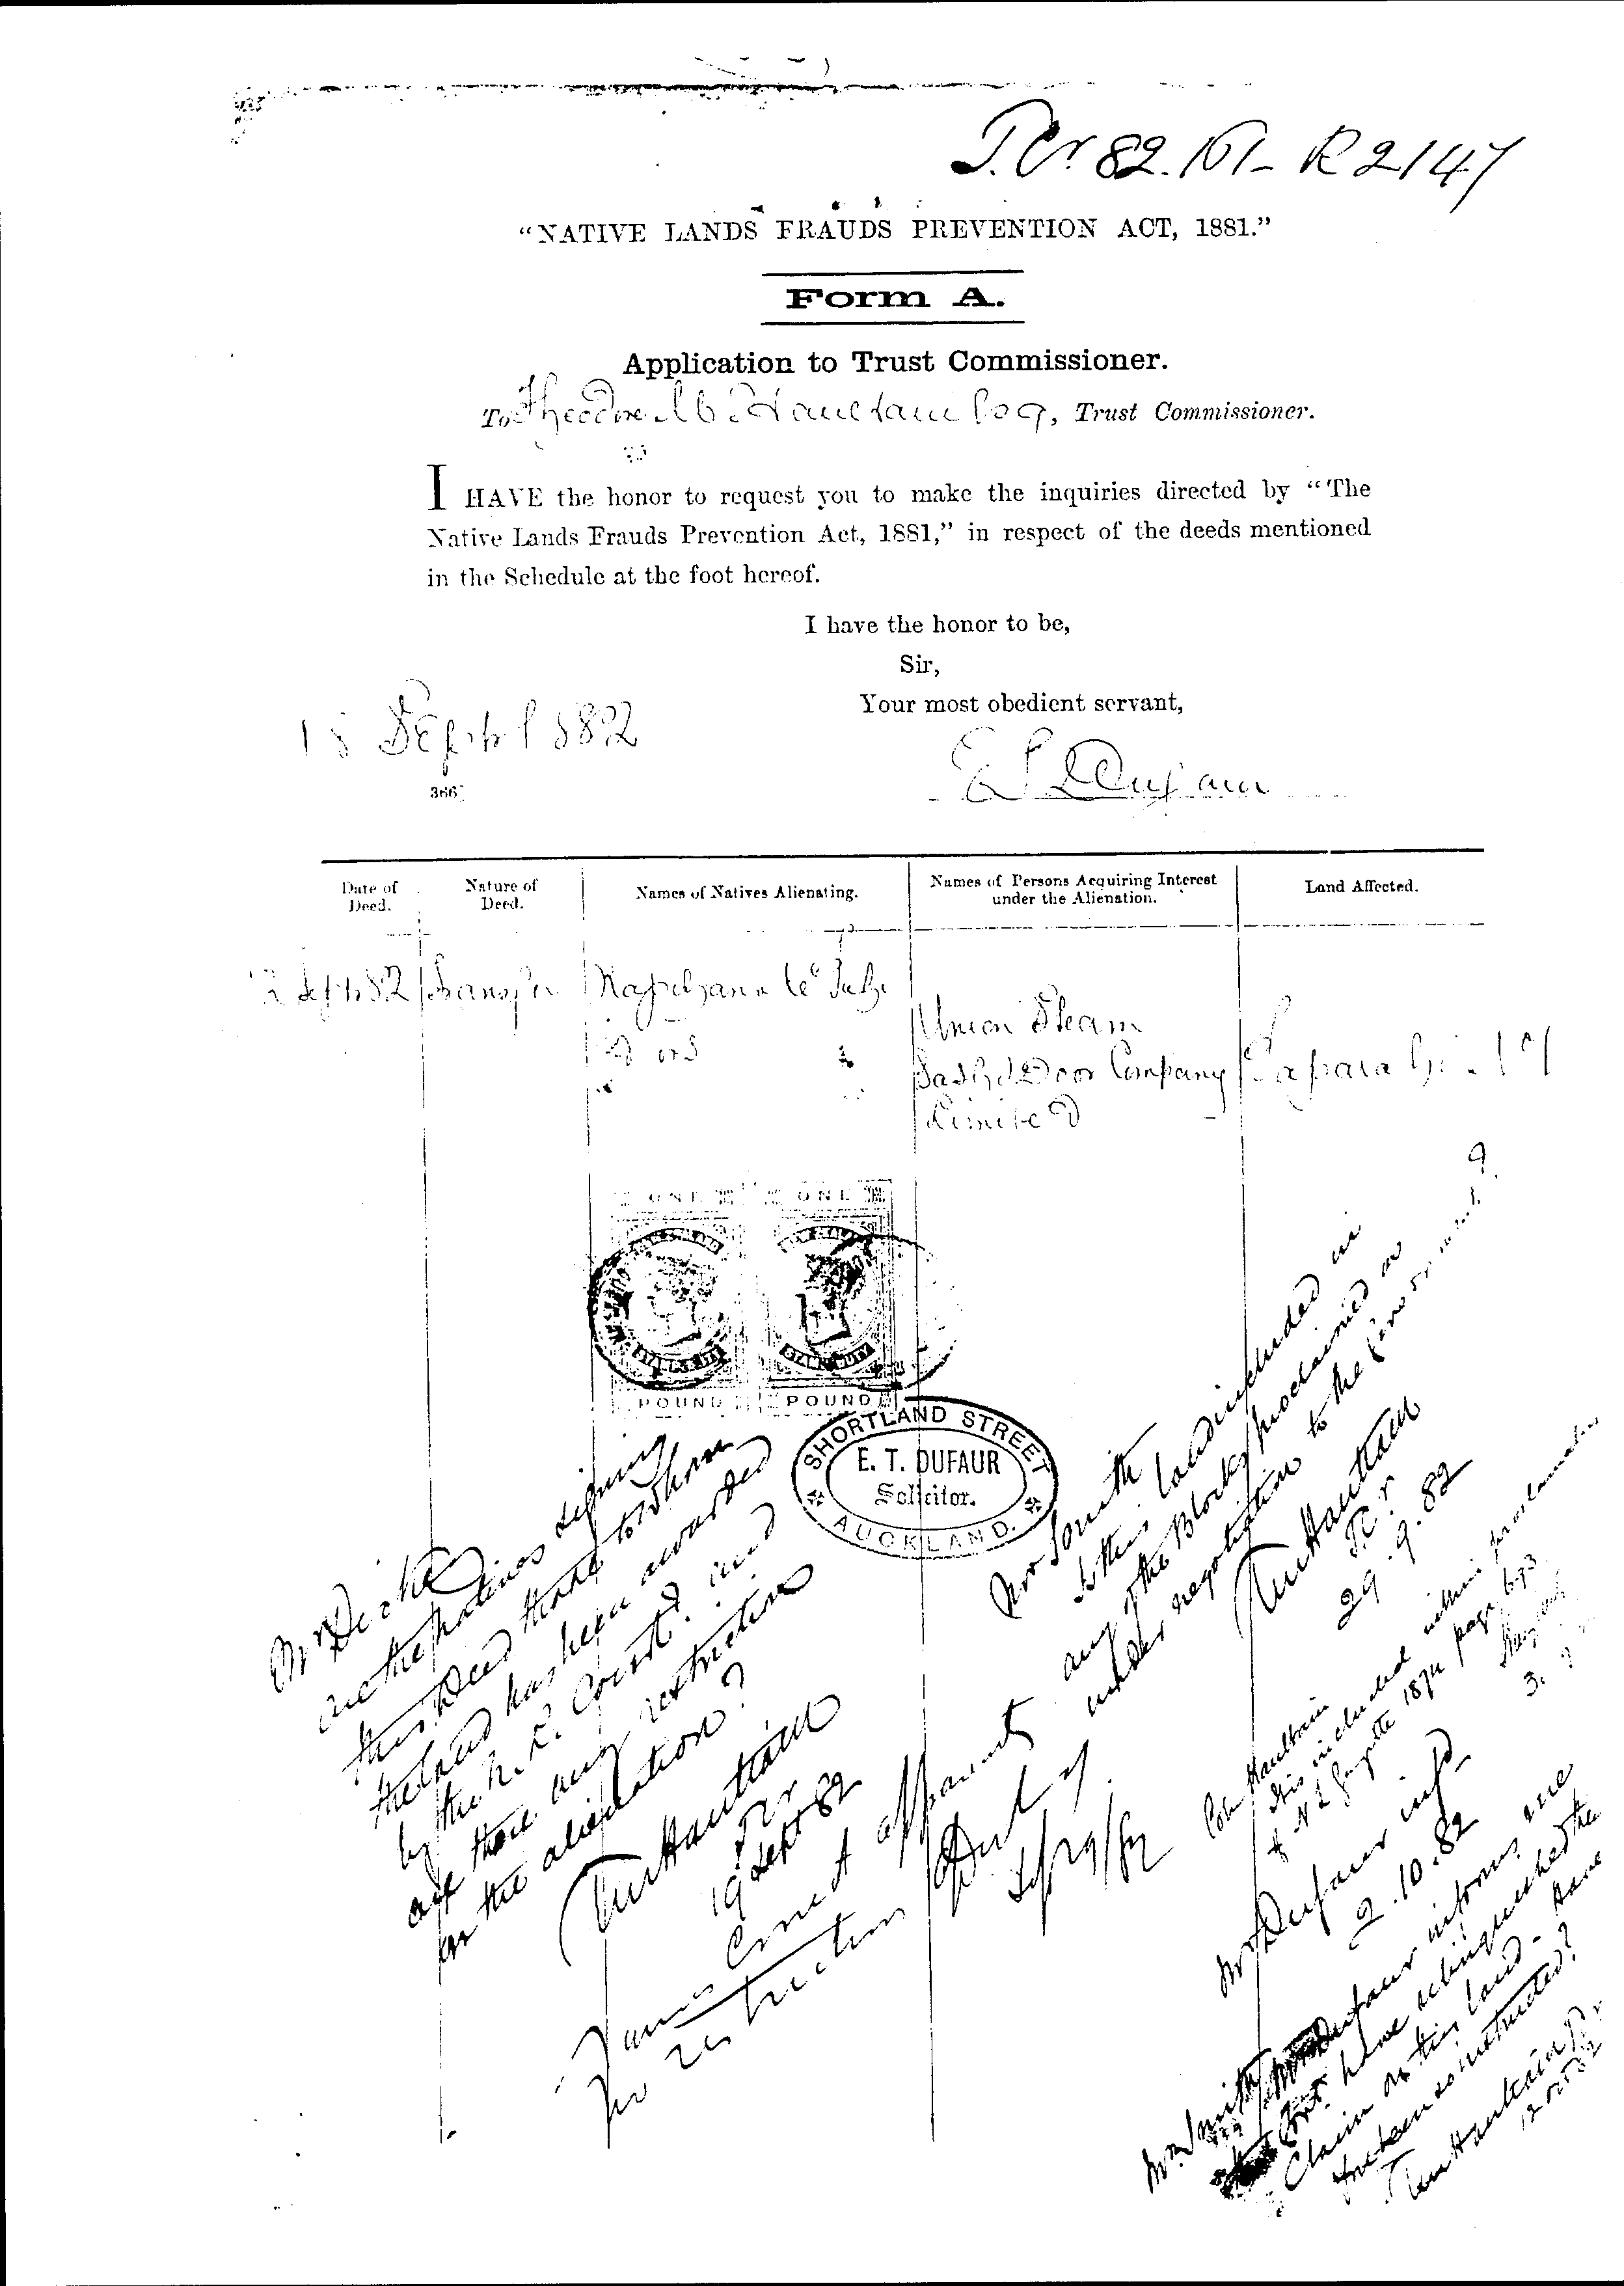 T. Cr 82.161 - R 2147
"NATIVE LANDS FRAUDS PREVENTION ACT, 1881."
Form A.
Application to Trust Commissioner.
To Theodore M. Haultain Esq, Trust Commissioner.
I HAVE the honor to request you to make the inquiries directed by "The
Native Lands Frauds Prevention Act, 1881," in respect of the deeds mentioned
in the Schedule at the foot hereof.
I have the honor to be,
Sir,
Your most obedient servant,
18 Septr 1882
E T Dufaur
366
Date of Deed.
Nature of Deed.
Names of Natives Alienating.
Names of Persons Acquiring Interest
under the Alienation.
Land Affected.
Sept 82
Transfer
te Tuhi
& ors
Union Steam
Sash & Door Company
Limited
ONE ONE
NEW ZEALAND
STAMP DUTY
POUND POUND
SHORTLAND STREET
E. T. DUFAUR
Solicitor.
AUCKLAND.
Mr Dickey
are the natives signing
this Deed those to whom
the land has been awarded
by the N. L. Court? and
are there any restrictions
on the alienation?
T M Haultain
T Cr
19 Sept 82
Names correct apparently
no restriction
Sep 29/82
Mr Smith
Is this land included in
any of the Blocks proclaimed as
under negotiation to the
T M Haultain
T Cr
29.9.82
Col Haultain
this included within proclamation
N Z Gazette page
Mr Dufaur infd
9.10.82
Mr Smith Mr Dufaur informs me
Govt have relinquished the
Claim on this land - have
you been so instructed?
T M Haultain T Cr
12 Oct 82